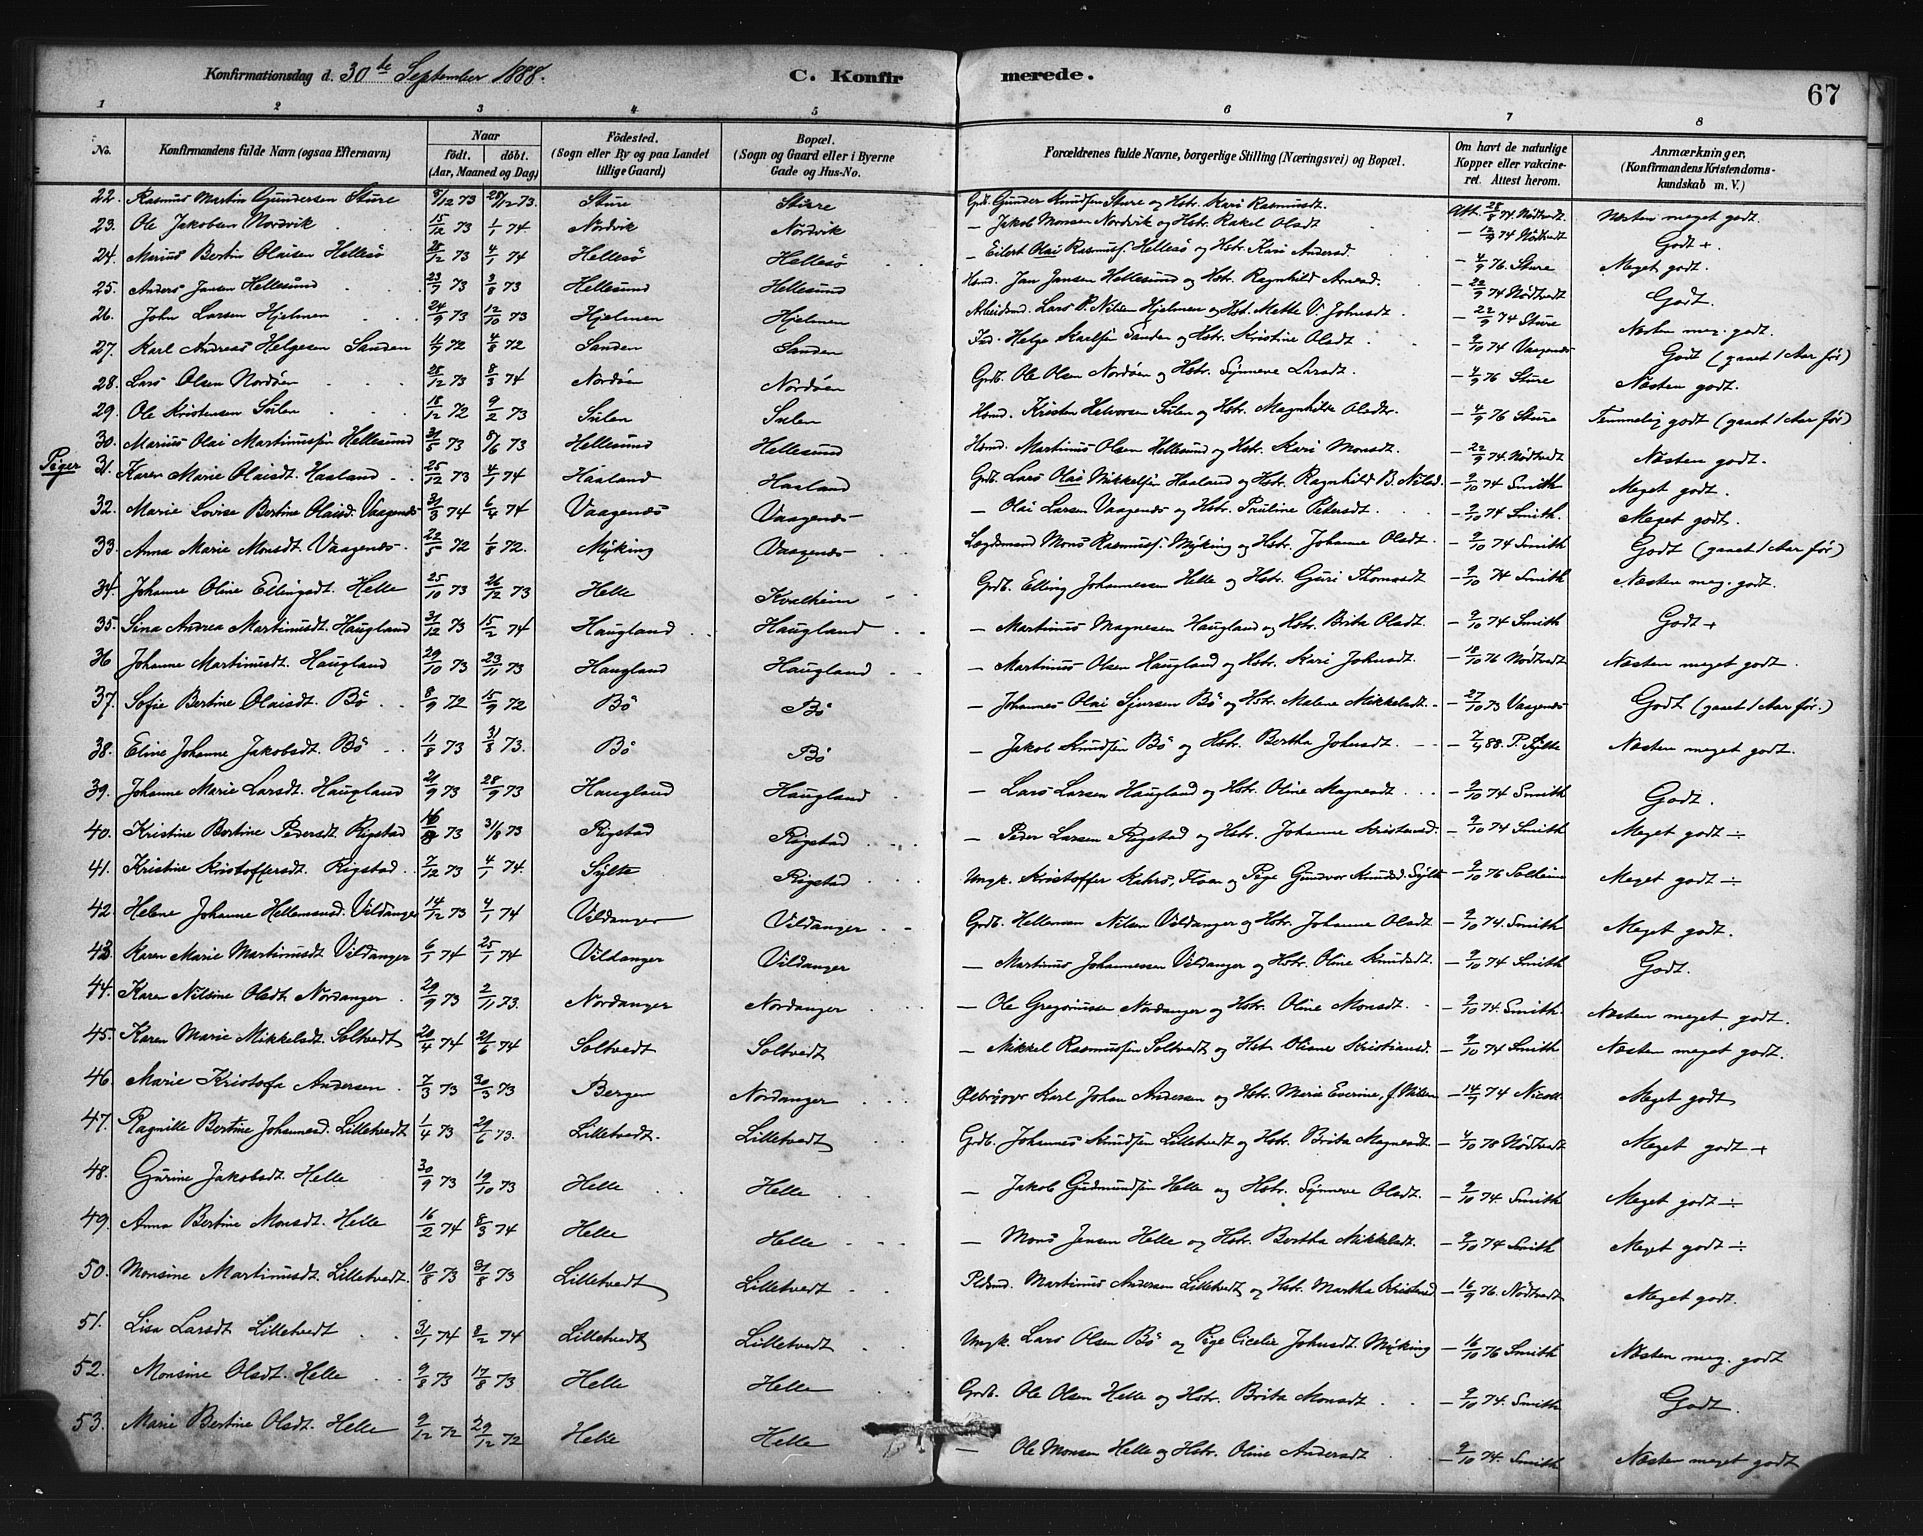 Konfirmationsdag d. 30te September 1888. C. Konfirmerede. 67
1 2 3 4 5 6 7 8
No. Konfirmandens fulde Navn (ogsaa Efternavn) Naar født. døbt. (Aar, Maaned og Dag) Fødested. (Sogn eller By og paa Landet tillige Gaard) Bopæl. (Sogn og Gaard eller i Byerne Gade og Hus-No. Forældrenes fulde Navne, borgerlige Stilling (Næringsvei) og Bopæl. Om havt de naturlige Kopper eller vakcineret. Attest herom. Anmærkninger, (Konfirmandens Kristendomskundskab m. V.)
22. Rasmus Martin Gundersen Sture 8/12 73 28/12 73. Sture Sture Grdb. Gunder Knudsen Sture og Hstr. Kari Rasmusdt. Att. 28/8 74 Nødtvedt Næsten meget godt.
23. Ole Jakobsen Nordvik 15/12 73 1/1 74 Nordvik Nordvik — Jakob Monsen Nordvik og Hstr. Rakel Olsdt — 12/9 74 Nødtvedt Godt +.
24. Marius Bertin Olaisen Hellesö 28/12 73 4/1 74 Hellesö Hellesö — Eilert Olai Rasmuss. Hellesö og Hstr. Kari Andersd. — 4/9 76. Sture Meget godt.
25. Anders Jansen Hellesund 23/7 73 3/8 73 Hellesund Hellesund Hsmd. Jan Jansen Hellesund og Hstr. Ragnhild Arnesd. — 22/9 74 Nødtvedt Godt.
26. John Larsen Hjelmen 24/9 73 12/10 73 Hjelmen Hjelmen Arbeidsmd. Lars P. Nilsen Hjelmen og Hst. Mette V. Johnsdt. — 22/9 74 Sture Næsten meg. godt.
27. Karl Andreas Helgesen Sanden 72 4/8 72 Sanden Sanden Ind. Helge Karlsen Sanden og Hstr. Kristine Olsdt. — 9/10 74 Vaagenes Godt (gaaet 1 Aar før)
28. Lars Olsen Nordöen 28/12 73 8/3 74 Nordöen Nordöen Grdb. Ole Olsen Nordöen og Hstr. Synneve Larsdt. — 4/9 76 Sture Næsten godt.
29. Ole Kristensen Sulen 18/12 72 9/2 73 Sulen Sulen Hsmd. Kristen Halvorsen Sulen og Hstr. Magnhilde Olsdtr. — 4/9 76 Sture Temmelig godt (gaaet 1 Aar før)
30. Marius Olai Martinussen Hellesund 31/5 73 8/6 73 Hellesund Hellesund Hsmd. Martinus Olsen Hellesund og Hstr. Kari Monsdt. — 22/9 74 Nødtvedt Næsten godt.
Piger
31. Karen Marie Olaisdt. Haaland 25/12 73 4/1 74 Haaland Haaland Grdb. Lars Olai Mikkelsen Haaland og Hstr. Ragnhild B. Nilsd. — 9/10 74 Smith Meget godt.
32. Marie Lovise Bertine Olaisd. Vaagenes 31/3 74 6/4 74 Vaagenes Vaagenes — Olai Larsen Vaagenes og Hstr. Pauline Petersdt. — 9/10 74 Smith. Meget godt.
33. Anna Marie Monsdt. Vaagenes 22/5 72 1/8 72. Myking Vaagenes Lægdsmand Mons Rasmuss. Myking og Hstr. Johanne Olsdt. — 9/10 74 Smith Godt (gaaet 1 Aar før)
34. Johanne Oline Ellingsdt. Helle 25/10 73 26/12 73 Helle Kvalheim Grdb. Elling Johannessen Helle og Hstr. Guri Thomasdt — 9/10 74 Smith Næsten meg. godt.
35. Sina Andrea Martinusdt. Haugland 31/12 73 15/2 74 Haugland Haugland — Martinus Magnesen Haugland og Hstr. Brita Olsdt. — 9/10 74 Smith Godt +
36 Johanne Martinusdt. Haugland 29/10 73 23/11 73 Haugland Haugland — Martinus Olsen Haugland og Hstr. Kari Johnsdt. — 18/10 76 Nødtvedt Næsten meget godt.
37. Sofie Bertine Olaisdt. Bö 8/9 72 15/9 72 Bö Bö — Johannes Olai Sjursen Bö og Hstr. Malene Mikkelsdt. — 27/10 73 Vaagenes Godt (gaaet 1 Aar før.)
38. Eline Johanne Jakobsdt. Bö 11/8 73 31/8 73. Bö Bö — Jakob Knudsen Bö og Hstr. Bertha Johnsdt. — 7/4 88. P. Sylte Næsten meget godt.
39. Johanne Marie Larsdt. Haugland 21/9 73 28/9 73 Haugland Haugland — Lars Larsen Haugland og Hstr. Oline Magnesdt — 9/10 74 Smith Godt.
40. Kristine Bertine Pedersdt Rigstad 16/8 73 31/8 73 Rigstad Rigstad — Peder Larsen Rigstad og Hstr. Johanne Kristensd. — 9/10 74 Smith Meget godt ÷
41. Kristine Kristoffersdt. Rigstad 7/12 73 4/1 74. Sylte Rigstad Ungk. Kristoffer Kahrs, Floen og Pige Gundvor Knudsd. Sylte — 9/10 76 Solheim Meget godt ÷
42. Helene Johanne Hellemsd. Vildanger 14/12 73 4/1 74 Vildanger Vildanger Grdb. Helleman Nilsen Vildanger og Hstr. Johanne Olsdt — 9/10 74. Smith Meget godt.
43. Karen Marie Martinusdt Vildanger 6/1 74 25/1 74 Vildanger Vildanger — Martinus Johannessen Vildanger og Hstr. Oline Knudsdt. — 9/10 74 Smith Godt.
44. Karen Nilsine Olsdt Nordanger 29/9 73 2/11 73. Nordanger Nordanger — Ole Gregoriussen Nordanger og Hstr. Oline Monsdt. — 9/10 74. Smith. Næsten meget godt.
45. Karen Marie Mikkelsdt. Soltvedt 20/4 74 21/6 74 Soltvedt Soltveidt — Mikkel Rasmussen Soltvedt og Hst. Oliane Kristiansd. — 9/10 74 Smith Næsten meget godt.
46. Marie Kristofa Andersen 7/3 73 30/3 73 Bergen Nordanger Ølbrygger Karl Johan Andersen og Hstr. Marie Everine, f. Nilsen — 14/9 74 Nicoll Meget godt
47. Ragnille Bertine Johannesd. Lilletvedt 1/4 73 29/6 73. Lilletvedt. Lilletvedt Grdb. Johannes Knudsen Lilletvedt og Hstr. Brita Magnesdt — 4/10 78 Nødtvedt Meget godt +
48. Gurine Jakobsdt. Helle 30/9 73 19/10 73 Helle Helle — Jakob Gudmundsen Helle og Hstr. Synneve Olsdt. — 9/10 74. Smith Meget godt ÷
49. Anna Bertine Monsdt. Helle 16/2 74 8/3 74 Helle Helle — Mons Jensen Helle og Hstr. Bertha Mikkelsdt. — 9/10 74 Smith Meget godt ÷
50. Monsine Martinusdt. Lilletvedt. 10/8 73 31/8 73 Lilletvedt Lilletvedt Pldsmd. Martinus Andersen Lilletvedt og Hstr. Martha Kristensd — 16/9 76. Nødtvedt Meget godt.
51. Lisa Larsdt Lilletvedt 31/1 74 8/2 74 Lilletvedt Lilletvedt Ungk. Lars Olsen Bö og Pige Cicelie Johnsdt. Myking — 16/10 76 Smith Næsten meg. godt
52. Monsine Olsdt. Helle 9/8 73 17/8 73 Helle Helle Grdb. Ole Olsen Helle og Hstr. Brita Monsdt. — 9/10 74. Smith Godt.
53. Marie Bertine Olsdt. Helle 9/12 72 29/12 72 Helle Helle — Ole Monsen Helle og Hstr. Oline Andersdt — 9/10 74. Smith Næsten meget godt